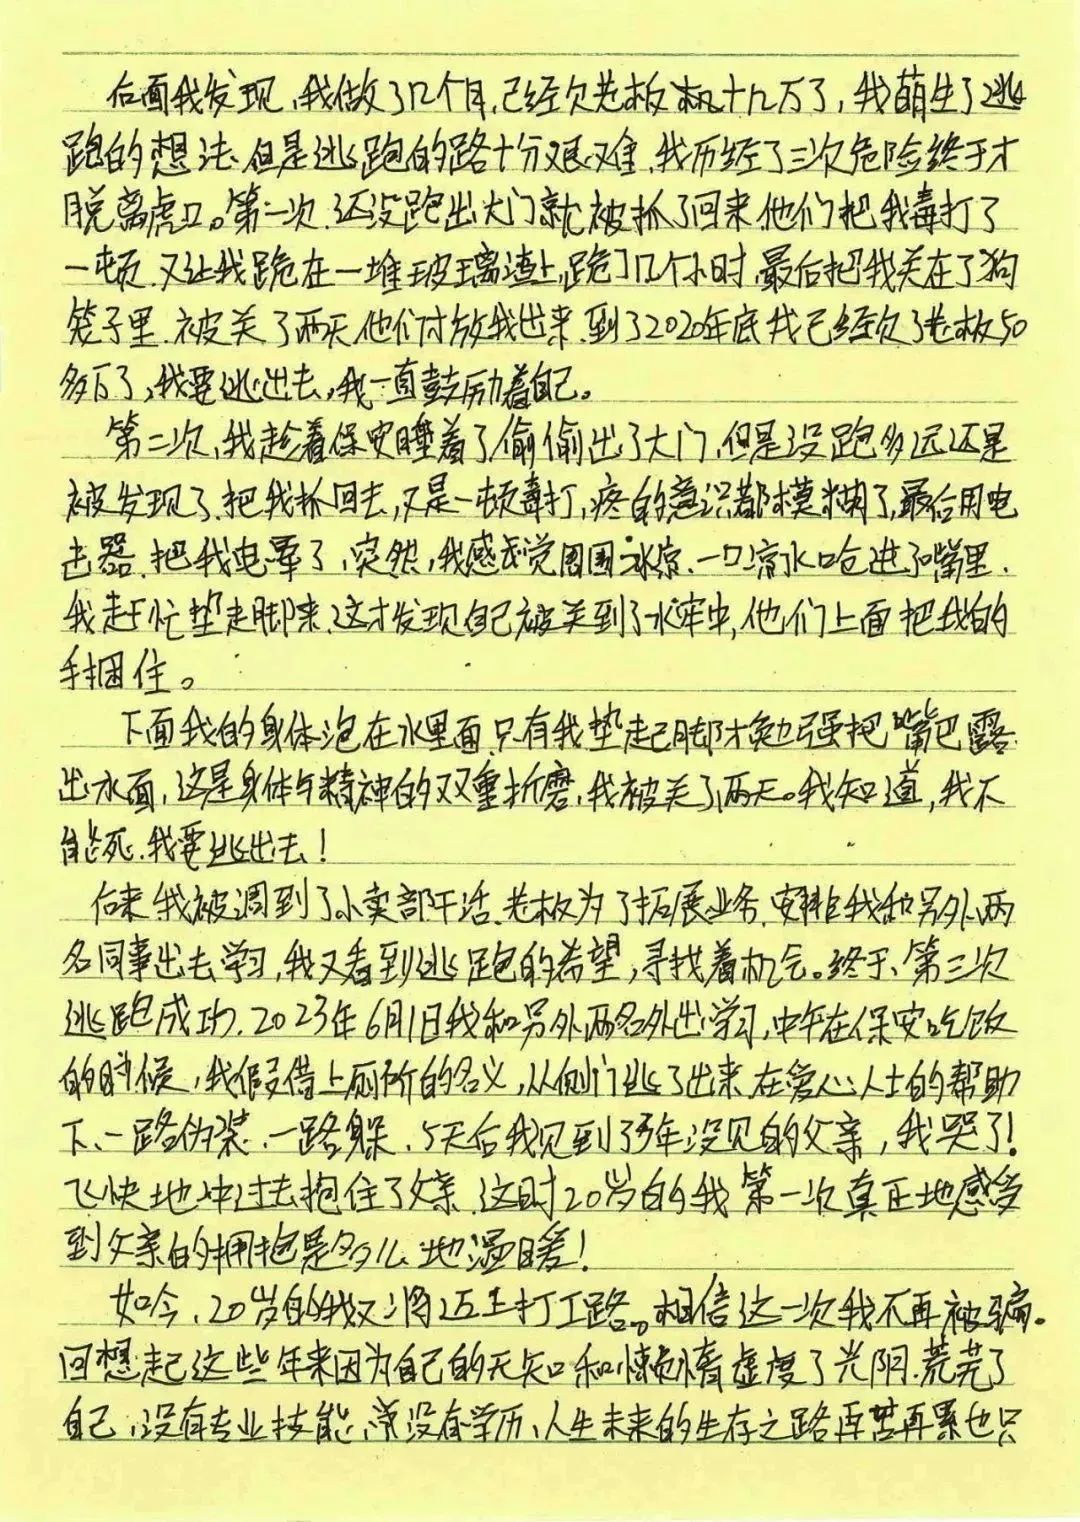 后面我发现,我做了几个月,已经欠老板机十几万了,我萌生了逃
跑的想法.但是逃跑的路十分艰难.我历经了三次危险终于才
脱离虎口。第一次.还没跑出大门就被抓了回来.他们把我毒打了
一顿.又让我跪在一堆玻璃渣上,跪了几个小时,最后把我关在了狗
笼子里.被关了两天他们才放我出来.到了2020年底我已经欠了老板50
多万了,我要逃出去,我一直鼓励着自己。
第二次,我趁着保安睡着了偷偷出了大门,但是没跑多远还是
被发现了.把我抓回去,又是一顿毒打,疼的意识都模糊了,最后用电
击器.把我电晕了.突然,我感觉周围冰凉.一口凉水呛进了嘴里.
我赶忙垫起脚来.这才发现自己被关到了水牢中,他们上面把我的
手捆住。
下面我的身体泡在水里面.只有我垫起脚才勉强把嘴巴露
出水面,这是身体与精神的双重折磨,我被关了两天。我知道,我不
能死.我要逃出去!
后来我被调到了小卖部干活.老板为了拓展业务.安排我和另外两
名同事出去学习,我又看到逃跑的希望,寻找着机会。终于、第三次
逃跑成功.2023年6月1日我和另外两名外出学习,中午在保安吃饭
的时候,我假借上厕所的名义,从侧门逃了出来.在爱心人士的帮助
下、一路伪装、一路躲.5天后我见到了3年没见的父亲,我哭了!
飞快地冲过去抱住了父亲.这时20岁的我第一次真正地感受
到父亲的拥抱是多么地温暖!
如今.20岁的我又将迈上打工路。相信这一次我不再被骗。
回想起这些年来因为自己的无知和懒惰虚度了光阴.荒芜了
自己.没有专业技能,没有学历、人生未来的生存之路再苦再累也只